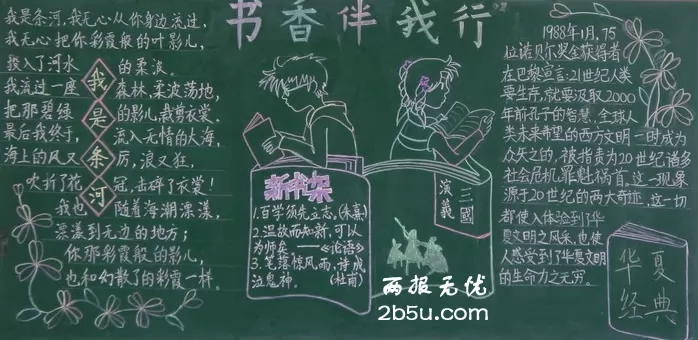 书香伴我行
我是条河,我无心从你身边流过,
我无心把你彩霞般的叶影儿,
投入了河水的柔波。
我流过一座森林,柔波荡地,
把那碧绿的影儿,裁剪衣裳。
最后我终于,流入无情的大海,
海上的风又厉,浪又狂,
吹折了花冠,击碎了衣裳!
我也随着海潮漂漾,
漂漾到无边的地方;
你那彩霞般的影儿,
也和幻散了的彩霞一样。
我是条河
新书架
1.百学须先立志。(朱熹)
2.温故而知新,可以
为师矣——《论语》
3.笔落惊风雨,诗成
泣鬼神。(杜甫)
三國
演義
1988年1月,75
位诺贝尔奖金获得者
在巴黎宣言:21世纪人类
要生存,就要汲取2000
年前孔子的智慧。全球人
类未来希望的西方文明一时成为
众矢之的,被指责为20世纪诸多
社会危机罪魁祸首。这一现象
源于20世纪的两大奇迹。这一切
都使人体验到了华
夏文明之风采,也使
人感受到了华夏文明
的生命力之无穷。
华夏
经典
两报无忧
2b5u.com